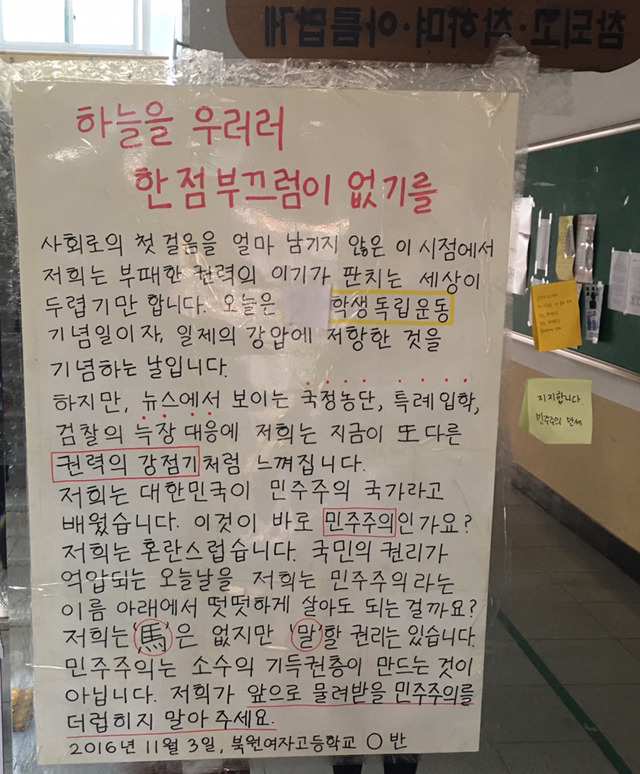 참되고·착하며·아름답게
하늘을 우러러
한 점 부끄럼이 없기를
사회로의 첫 걸음을 얼마 남기지 않은 이 시점에서
저희는 부패한 권력의 이기가 판치는 세상이
두렵기만 합니다. 오늘은 학생독립운동
기념일이자, 일제의 강압에 저항한 것을
기념하는 날입니다.
하지만, 뉴스에서 보이는 국정농단, 특례입학,
검찰의 늑장 대응에 저희는 지금이 또 다른
권력의 강점기처럼 느껴집니다.
저희는 대한민국이 민주주의 국가라고
배웠습니다. 이것이 바로 민주주의인가요?
저희는 혼란스럽습니다. 국민의 권리가
억압되는 오늘날을 저희는 민주주의라는
이름 아래에서 떳떳하게 살아도 되는걸까요?
저희는 '馬'은 없지만 '말'할 권리는 있습니다.
민주주의는 소수의 기득권층이 만드는 것이
아닙니다. 저희가 앞으로 물려받을 민주주의를
더럽히지 말아 주세요.
2016년 11월 3일, 북원여자고등학교 ○반
지지합니다
민주주의 만세